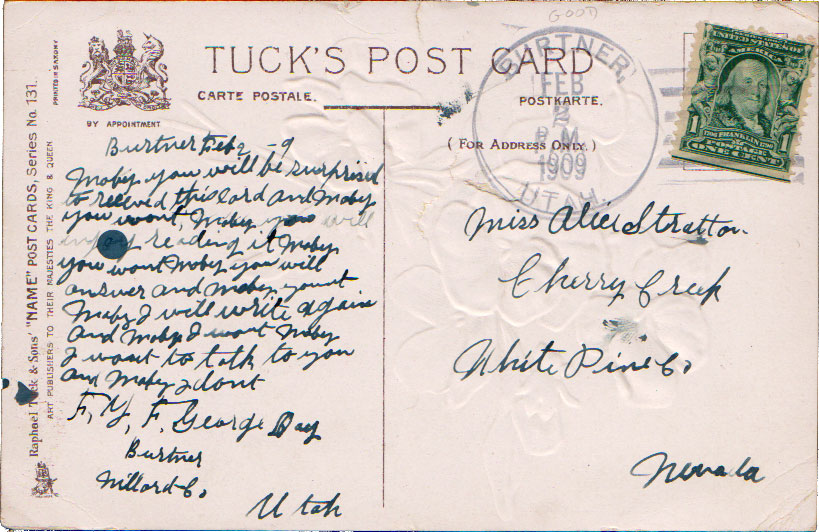 GOOD
TUCK'S POST CARD
CARTE POSTALE.
POSTKARTE.
BY APPOINTMENT
(FOR ADDRESS ONLY.)
PRINTED IN SAXONY
Raphael Tuck & Sons' "NAME" POST CARDS, Series No. 131.
ART PUBLISHERS TO THEIR MAJESTIES THE KING & QUEEN
BURTNER,
FEB
2
P.M.
1909
UTAH.
UNITED STATES OF AMERICA
1
FRANKLIN
POSTAGE
ONE CENT
Burtner Feb 2, -9
Mabye you will be surprised
to relieved this card and Mabye
you wont, Mabye you will
injoy reading it Mabye
you wont Mabye you will
answer and Mabye you wont
Mabye I will write again
and Mabye I wont Mabye
I want to talk to you
and Mabye I dont
F, Y, F, George Day
Burtner
Millard Co
Utah
Miss Alice Stratton
Cherry Creek
White Pine Co
Nevada